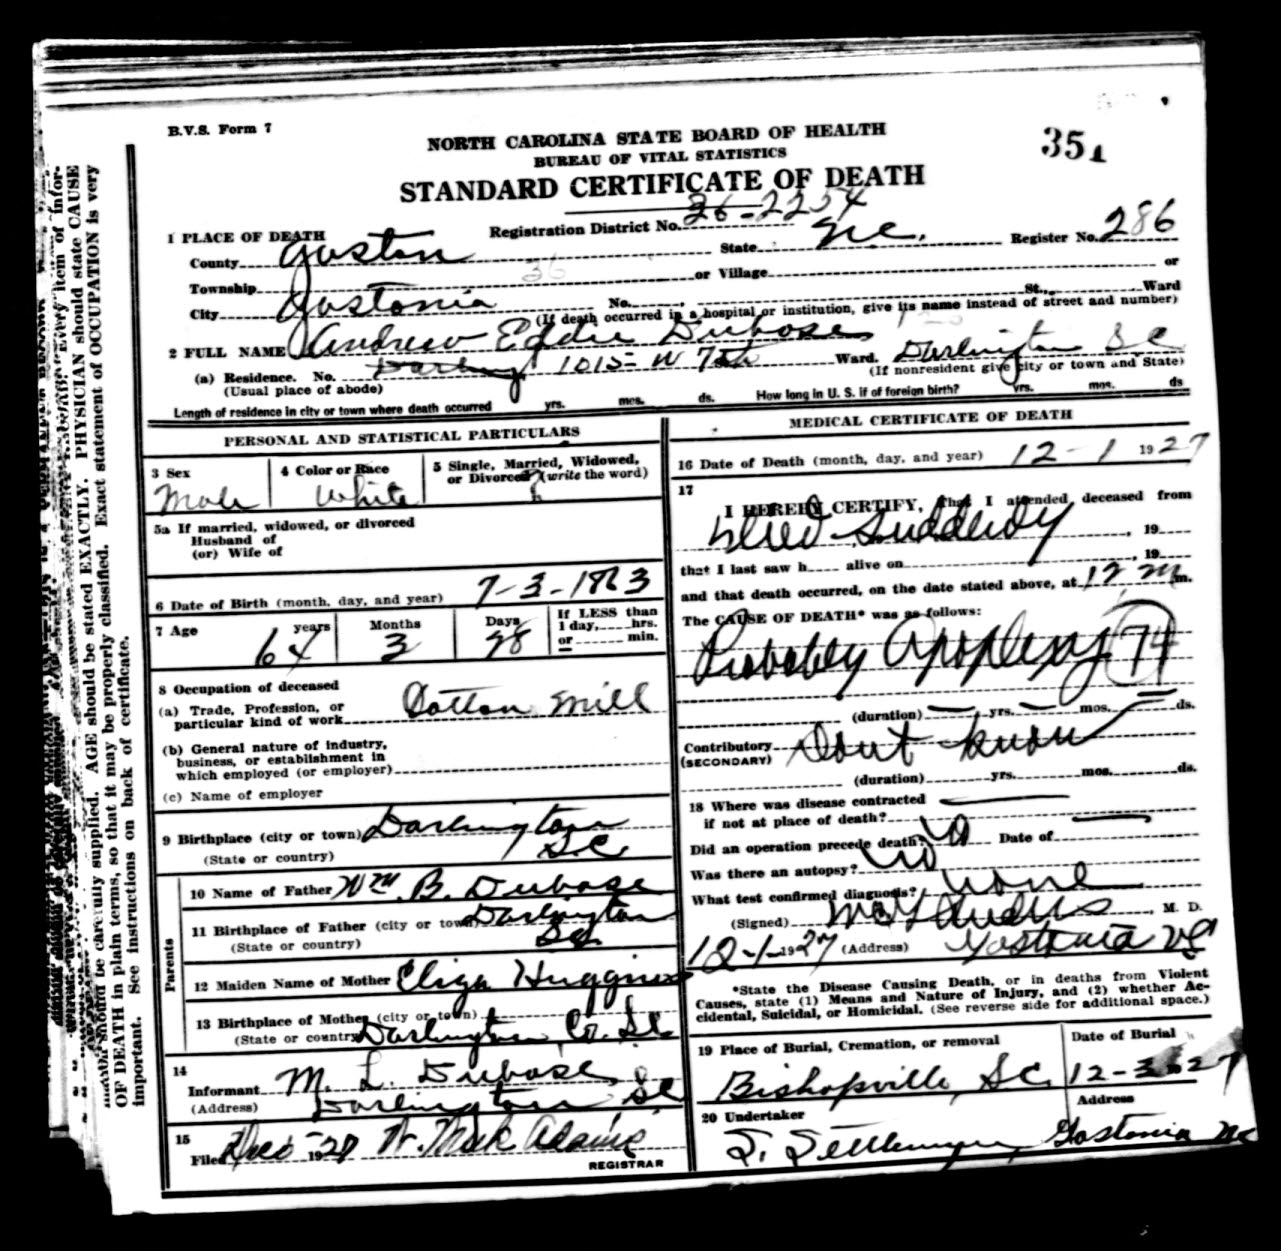 B.V.S. Form 7
NORTH CAROLINA STATE BOARD OF HEALTH
BUREAU OF VITAL STATISTICS
STANDARD CERTIFICATE OF DEATH
351
1 PLACE OF DEATH
Registration District No. 36-2254
Register No. 286
County Gaston
State N.C.
Township
or Village
or
City Gastonia
No. , St., Ward
(If death occurred in a hospital or institution, give its name instead of street and number)
2 FULL NAME Andrew Eddie Dubose
(a) Residence. No. 1015 W 7th Ward. Darlington S C
(Usual place of abode)
(If nonresident give city or town and State)
Length of residence in city or town where death occurred yrs. mos. ds. How long in U. S. if of foreign birth? yrs. mos. ds
PERSONAL AND STATISTICAL PARTICULARS
3 Sex
Male
4 Color or Race
White
5 Single, Married, Widowed,
or Divorced (write the word)
5a If married, widowed, or divorced
Husband of
(or) Wife of
6 Date of Birth (month, day, and year) 7-3-1863
7 Age
64 years
Months
3
Days
28
If LESS than
1 day, hrs.
or min.
8 Occupation of deceased
(a) Trade, Profession, or
particular kind of work Cotton Mill
(b) General nature of industry,
business, or establishment in
which employed (or employer)
(c) Name of employer
9 Birthplace (city or town) Darlington
(State or country) S.C.
Parents
10 Name of Father Wm B. Dubose
11 Birthplace of Father (city or town) Darlington
(State or country) SC
12 Maiden Name of Mother Eliza Huggins
13 Birthplace of Mother (city or town)
(State or country) Darlington Co. S.C.
14
Informant M. L. Dubose
(Address) Darlington SC
15
Filed Dec 1927 Adams
REGISTRAR
MEDICAL CERTIFICATE OF DEATH
16 Date of Death (month, day, and year) 12-1 1927
17
I HEREBY CERTIFY, That I attended deceased from
Died Suddenly , 19
that I last saw h alive on , 19
and that death occurred, on the date stated above, at 12 m.
The CAUSE OF DEATH* was as follows:
Probably Apoplexy 74
(duration) yrs. mos. ds.
Contributory Dont know
(SECONDARY)
(duration) yrs. mos. ds.
18 Where was disease contracted
if not at place of death?
Did an operation precede death? No Date of
Was there an autopsy? No
What test confirmed diagnosis? none
(Signed) , M. D.
12-1-1927 (Address) Gastonia NC
*State the Disease Causing Death, or in deaths from Violent
Causes, state (1) Means and Nature of Injury, and (2) whether Ac-
cidental, Suicidal, or Homicidal. (See reverse side for additional space.)
19 Place of Burial, Cremation, or removal
Date of Burial
Bishopville, S.C. 12-3-27
20 Undertaker
Address
Gastonia NC
AGE should be stated EXACTLY. PHYSICIAN should state CAUSE
OF DEATH in plain terms, so that it may be properly classified. Exact statement of OCCUPATION is very
important. See instructions on back of certificate.